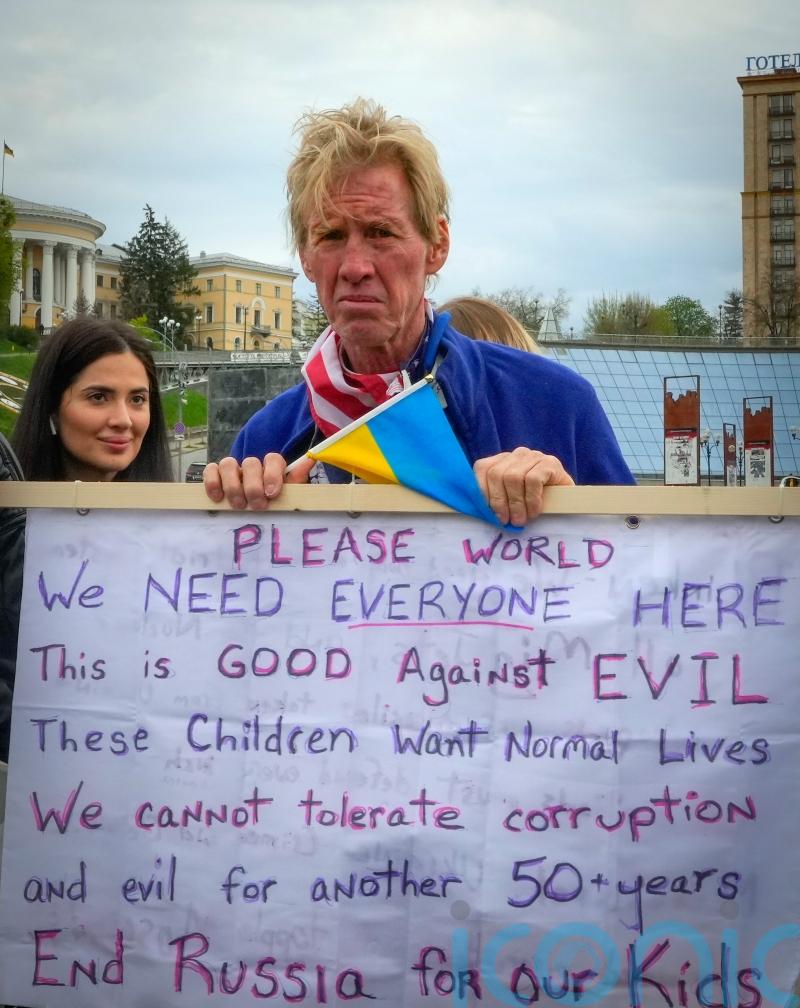 ГОТЕЛ
PLEASE WORLD
We NEED EVERYONE HERE
This is GOOD Against EVIL
These Children Want Normal Lives
We cannot tolerate corruption
and evil for another 50+years
End Russia for our Kids
iconic